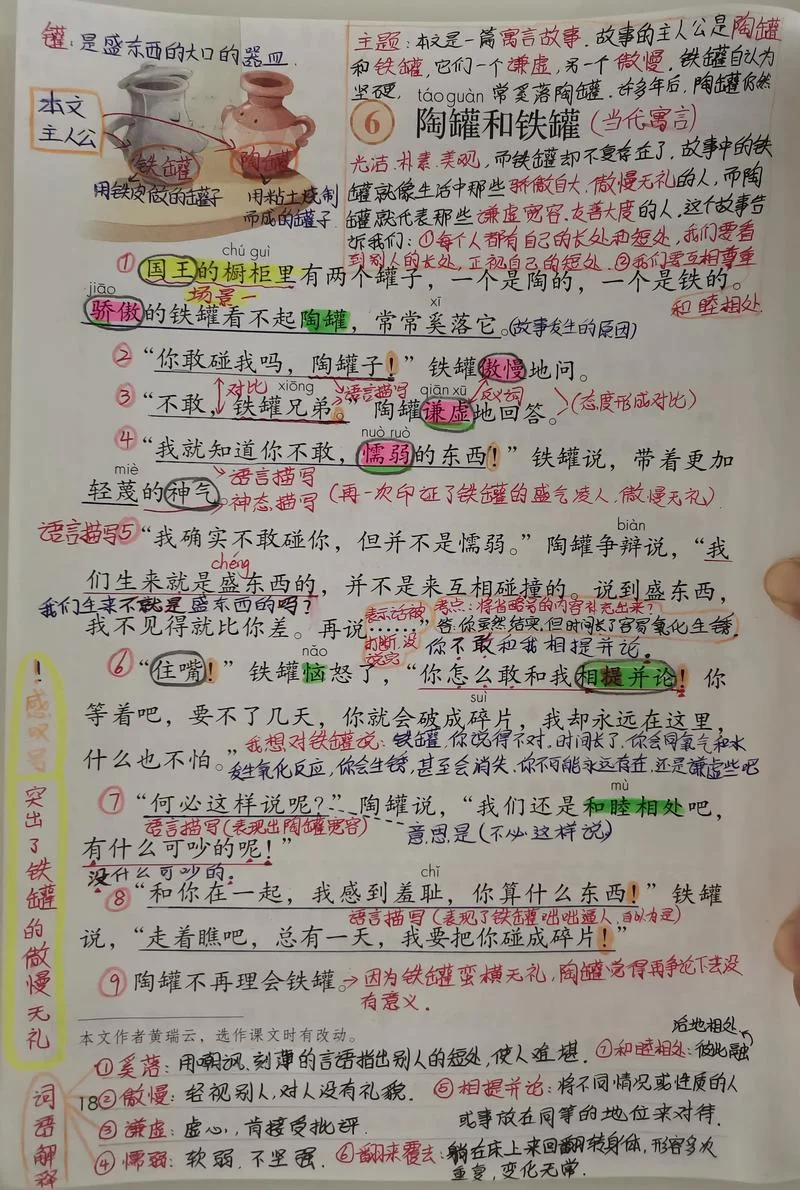 罐：是盛东西的大口的器皿.
本文
主人公
铁罐
陶罐
用铁皮做的罐子
用粘土烧制
而成的罐子
主题：本文是一篇寓言故事.故事的主人公是陶罐
和铁罐,它们一个谦虚,另一个傲慢.铁罐自认为
坚硬,常常奚落陶罐.许多年后,陶罐仍然
táo guàn
6 陶罐和铁罐(当代寓言)
光洁.朴素.美观,而铁罐却不复存在了,故事中的铁
罐就像生活中那些骄傲自大.傲慢无礼的人,而陶
罐就代表那些谦虚宽容.友善大度的人.这个故事告
诉我们：①每个人都有自己的长处和短处,我们要看
到别人的长处,正视自己的短处.②我们要互相尊重
和睦相处.
chú guì
①国王的橱柜里有两个罐子，一个是陶的，一个是铁的。
场景一
jiāo xī
骄傲的铁罐看不起陶罐，常常奚落它。(故事发生的原因)
②“你敢碰我吗，陶罐子！”铁罐傲慢地问。
对比 xiōng 语言描写 qiān xū 反义词
③“不敢，铁罐兄弟。”陶罐谦虚地回答。(态度形成对比)
nuò ruò
④“我就知道你不敢，懦弱的东西！”铁罐说，带着更加
miè 语言描写
轻蔑的神气。神态描写(再一次印证了铁罐的盛气凌人.傲慢无礼)
biàn
语言描写⑤“我确实不敢碰你，但并不是懦弱。”陶罐争辩说，“我
chéng
们生来就是盛东西的，并不是来互相碰撞的。说到盛东西，
我们生来不就是盛东西的吗？
表示话被
打断.没
说完
考点：将省略号的内容补充出来？
我不见得就比你差。再说……”答：你虽然结实,但时间长了容易氧化生锈.
你不敢和我相提并论。
nǎo
⑥“住嘴！”铁罐恼怒了，“你怎么敢和我相提并论！你
suì
等着吧，要不了几天，你就会破成碎片，我却永远在这里，
什么也不怕。”我想对铁罐说：铁罐,你说得不对.时间长了,你会同氧气和水
发生氧化反应,你会生锈,甚至会消失.你不可能永远存在,还是谦虚些吧
mù
⑦“何必这样说呢？”陶罐说，“我们还是和睦相处吧，
语言描写(表现出陶罐宽容) 意思是(不必这样说)
有什么可吵的呢！”
没什么可吵的.
chǐ
⑧“和你在一起，我感到羞耻，你算什么东西！”铁罐
语言描写(表现了铁罐咄咄逼人.自以为是)
说，“走着瞧吧，总有一天，我要把你碰成碎片！”
⑨陶罐不再理会铁罐。因为铁罐蛮横无礼,陶罐觉得再争论下去没
有意义.
！感叹号
突出了铁罐的傲慢无礼
本文作者黄瑞云，选作课文时有改动。
词语解释
①奚落：用嘲讽.刻薄的言语指出别人的短处,使人难堪.
⑦和睦相处：彼此融
洽地相处
18
②傲慢：轻视别人,对人没有礼貌.
⑤相提并论：将不同情况或性质的人
或事放在同等的地位来对待.
③谦虚：虚心,肯接受批评.
④懦弱：软弱,不坚强.
⑥翻来覆去：躺在床上来回翻转身体,形容多次
重复,变化无常.